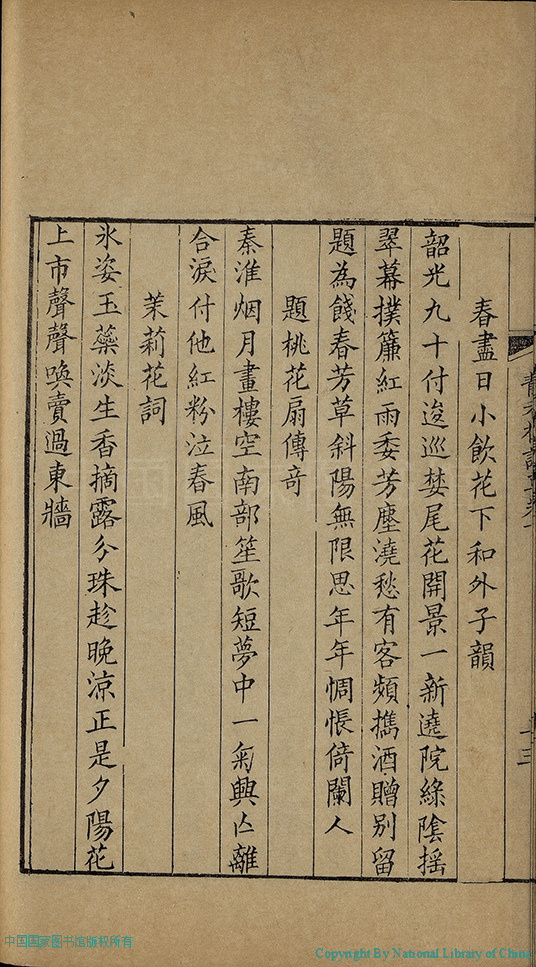 春盡日小飲花下和外子韻
韶光九十付逡巡婪尾花開景一新遶院綠陰搖
翠幕撲簾紅雨委芳塵澆愁有客頻攜酒贈別留
題為餞春芳草斜陽無限思年年惆悵倚闌人
題桃花扇傳奇
秦淮烟月畫樓空南部笙歌短夢中一氣興亡離
合淚付他紅粉泣春風
茉莉花詞
氷姿玉蘂淡生香摘露分珠趁晚涼正是夕陽花
上市聲聲喚賣過東牆
中国国家图书馆版权所有
Copyright By National Library of China